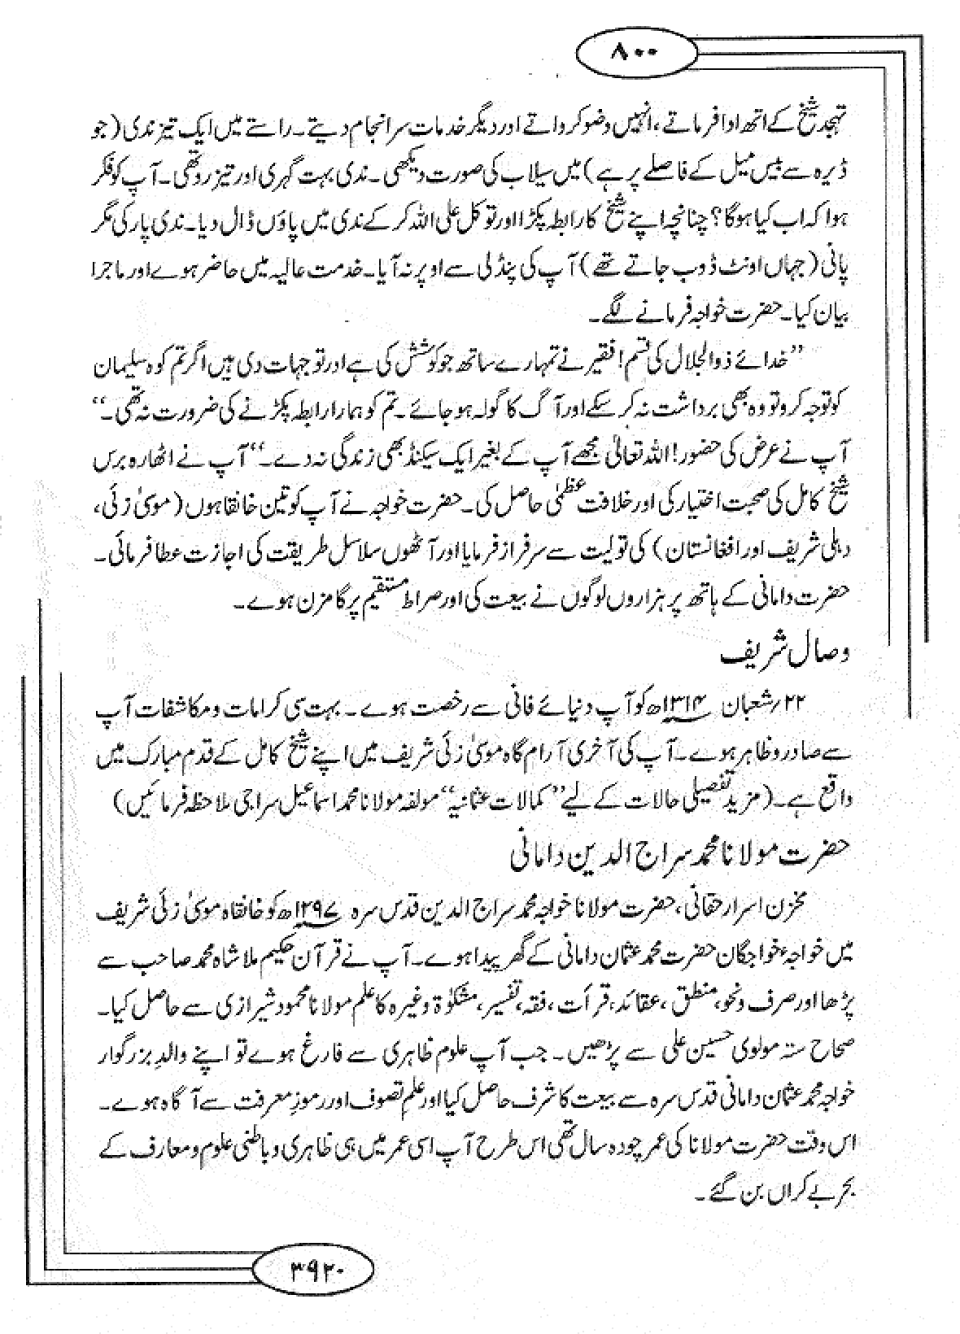 ۸۰۰
تہجد شیخ کے اتھ ادا فرماتے، انہیں وضو کرواتے اور دیگر خدمات سرانجام دیتے۔ راستے میں ایک تیز ندی (جو
ڈیرہ سے بیس میل کے فاصلے پر ہے) میں سیلاب کی صورت دیکھی۔ ندی بہت گہری اور تیز رو تھی۔ آپ کو فکر
ہوا کہ اب کیا ہوگا؟ چنانچہ اپنے شیخ کا رابطہ پکڑا اور توکل علی اللہ کر کے ندی میں پاؤں ڈال دیا۔ ندی پار کی مگر
پانی (جہاں اونٹ ڈوب جاتے تھے) آپ کی پنڈلی سے اوپر نہ آیا۔ خدمت عالیہ میں حاضر ہوے اور ماجرا
بیان کیا۔ حضرت خواجہ فرمانے لگے۔
”خدائے ذوالجلال کی قسم! فقیر نے تمہارے ساتھ جو کوشش کی ہے اور توجہات دی ہیں اگر تم کوہ سلیمان
کو توجہ کرو تو وہ بھی برداشت نہ کر سکے اور آگ کا گولہ ہو جائے۔ تم کو ہمارا رابطہ پکڑنے کی ضرورت نہ تھی۔“
آپ نے عرض کی حضور! اللہ تعالیٰ مجھے آپ کے بغیر ایک سیکنڈ بھی زندگی نہ دے۔“ آپ نے اٹھارہ برس
شیخ کامل کی صحبت اختیار کی اور خلافت عظمیٰ حاصل کی۔ حضرت خواجہ نے آپ کو تین خانقاہوں (موسیٰ زئی،
دہلی شریف اور افغانستان) کی تولیت سے سرفراز فرمایا اور آٹھوں سلاسل طریقت کی اجازت عطا فرمائی۔
حضرت دامانی کے ہاتھ پر ہزاروں لوگوں نے بیعت کی اور صراط مستقیم پر گامزن ہوے۔
وصال شریف
۲۲؍شعبان ۱۳۱۴ھ کو آپ دنیائے فانی سے رخصت ہوے۔ بہت سی کرامات و مکاشفات آپ
سے صادر و ظاہر ہوے۔ آپ کی آخری آرام گاہ موسیٰ زئی شریف میں اپنے شیخ کامل کے قدم مبارک میں
واقع ہے۔ (مزید تفصیلی حالات کے لیے ”کمالات عثمانیہ“ مولفہ مولانا محمد اسماعیل سراجی ملاحظہ فرمائیں)
حضرت مولانا محمد سراج الدین دامانی
مخزن اسرار حقانی، حضرت مولانا خواجہ محمد سراج الدین قدس سرہ ۱۲۹۷ھ کو خانقاہ موسیٰ زئی شریف
میں خواجہء خواجگان حضرت محمد عثمان دامانی کے گھر پیدا ہوے۔ آپ نے قرآن حکیم ملا شاہ محمد صاحب سے
پڑھا اور صرف و نحو، منطق، عقائد، قرأت، فقہ، تفسیر، مشکوٰۃ وغیرہ کا علم مولانا محمود شیرازی سے حاصل کیا۔
صحاح ستہ مولوی حسین علی سے پڑھیں۔ جب آپ علوم ظاہری سے فارغ ہوے تو اپنے والدِ بزرگوار
خواجہ محمد عثمان دامانی قدس سرہ سے بیعت کا شرف حاصل کیا اور علم تصوف اور رموزِ معرفت سے آگاہ ہوے۔
اس وقت حضرت مولانا کی عمر چودہ سال تھی اس طرح آپ اسی عمر میں ہی ظاہری و باطنی علوم و معارف کے
بحر بے کراں بن گئے۔
۳۹۲۰